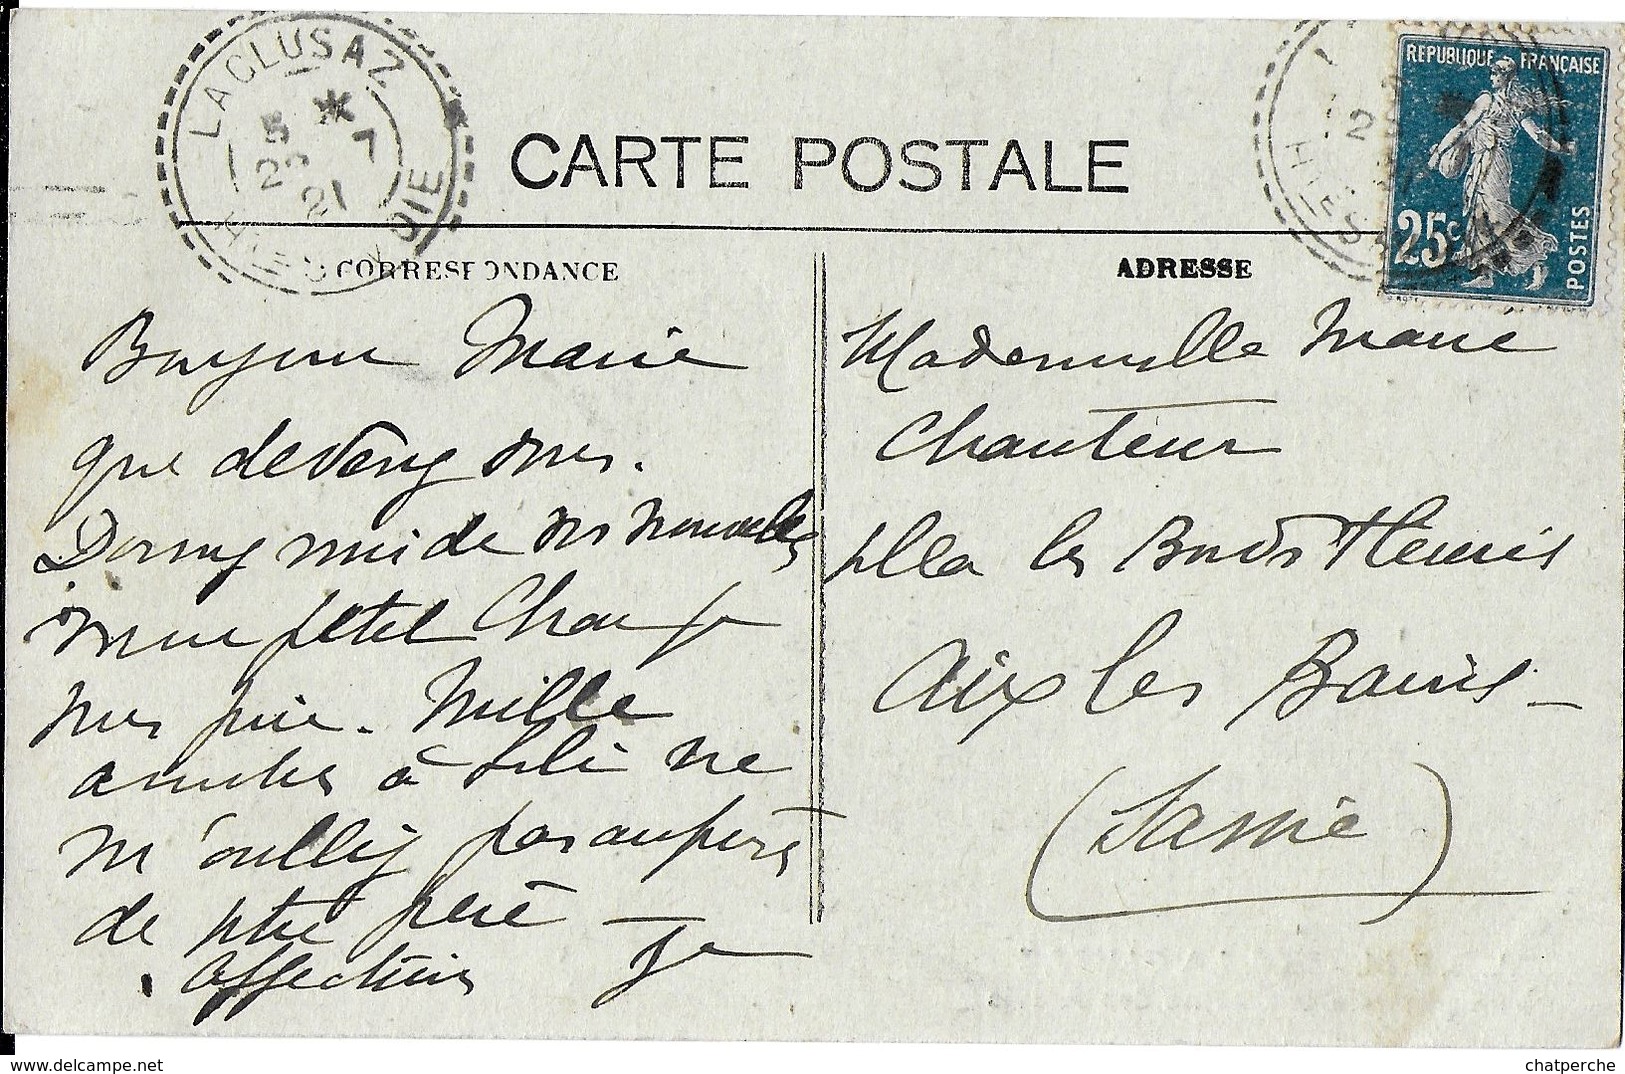 LA CLUSAZ
5 *
7
21
HTE SAVOIE
CARTE POSTALE
REPUBLIQUE FRANÇAISE
25c
POSTES
CORRESPONDANCE
ADRESSE
Bonjour Marie
que devenez vous.
Donnez moi de vos nouvelles
mon petit
. Mille
amitiés à Lili ne
m'oubliez pas auprès
de votre père
affection
Mademoiselle Marie
Chanteur
villa les Bords Fleuris
Aix les Bains
(Savoie)
chatperche